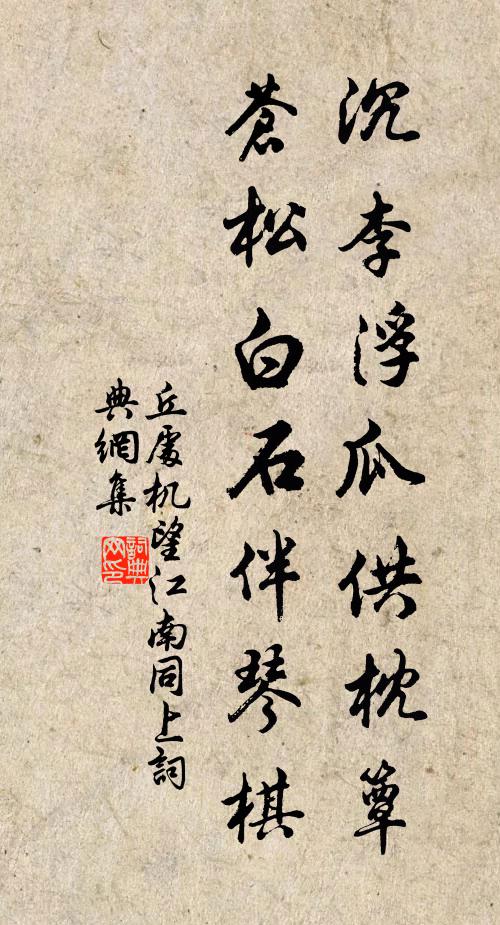 沉李浮瓜供枕簟
蒼松白石伴琴棋
丘處机望江南同上詞
典網集
詞典
网印